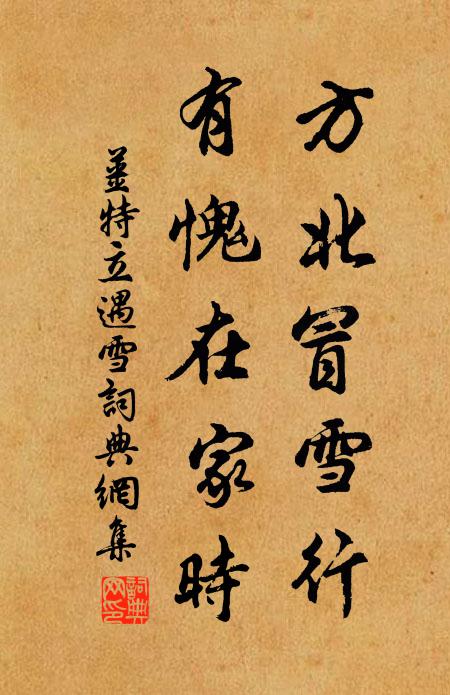 方此冒雪行
有愧在家時
薑特立遇雪詞典網集
詞典
网印